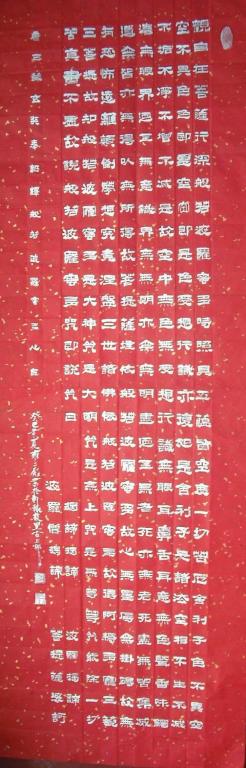 觀自在菩薩行深般若波羅蜜多時照見五蘊皆空度一切苦厄舍利子色不異空
空不異色色即是空空即是色受想行識亦復如是舍利子是諸法空相不生不滅
不垢不淨不增不減是故空中無色無受想行識無眼耳鼻舌身意無色聲香味觸
法無眼界乃至無意識界無無明亦無無明盡乃至無老死亦無老死盡無苦集滅
道無智亦無得以無所得故菩提薩埵依般若波羅蜜多故心無罣礙無罣礙故無
有恐怖遠離顛倒夢想究竟涅槃三世諸佛依般若波羅蜜多故得阿耨多羅三藐
三菩提故知般若波羅蜜多是大神咒是大明咒是無上咒是無等等咒能除一切
苦真實不虛故說般若波羅蜜多咒即說咒曰
揭諦揭諦 波羅揭諦
波羅僧揭諦 菩提薩婆訶
唐三藏玄奘奉詔譯般若波羅蜜多心經